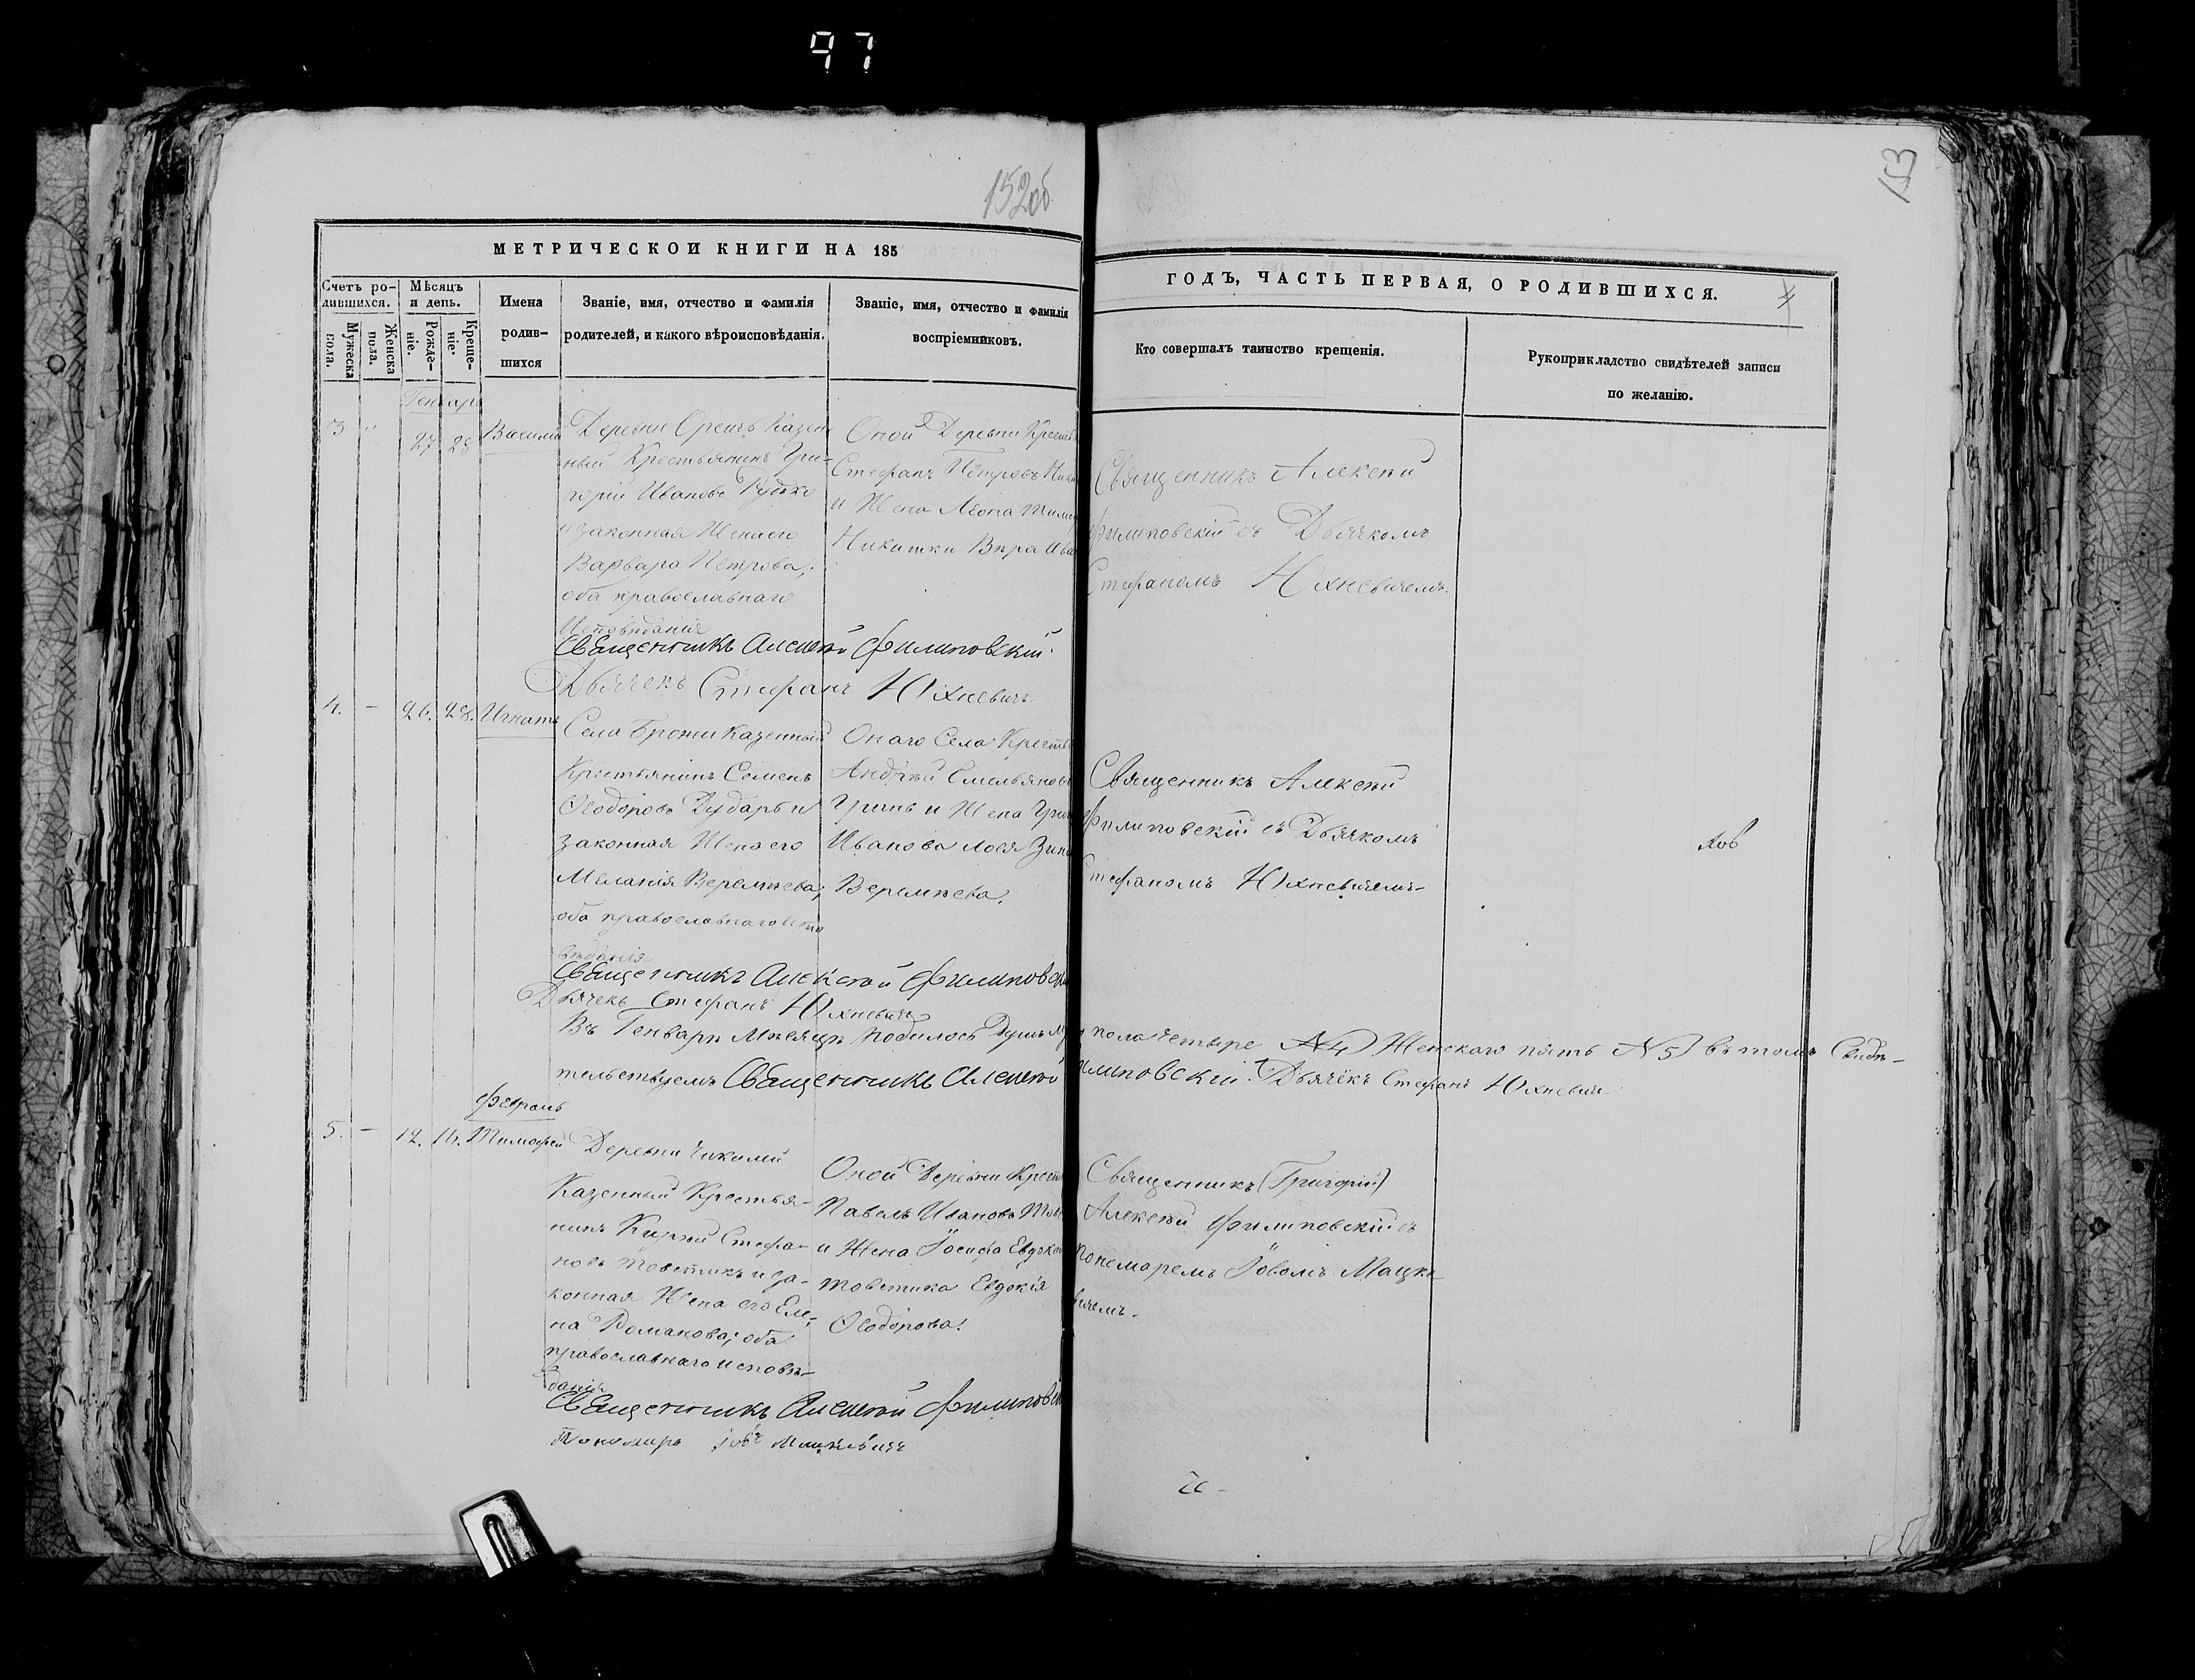 97
152об
153
МЕТРИЧЕСКОИ КНИГИ НА 185
ГОДЪ, ЧАСТЬ ПЕРВАЯ, О РОДИВШИХСЯ.
4
Счетъ ро-
дившихся.
Мужеска
пола.
Женска
пола.
Мѣсяцъ
и день.
Рожде-
ніе.
Креще-
ніе.
Имена
родив-
шихся
Званіе, имя, отчество и фамилія
родителей, и какого вѣроисповѣданія.
Званіе, имя, отчество и фамилія
воспріемниковъ.
Кто совершалъ таинство крещенія.
Рукоприкладство свидѣтелей записи
по желанію.
Генварь
3 " 27 28 Василій
Деревни Орѣшъ Казен
ный Крестьянинъ Гри-
горій Ивановъ
и законная Жена его
Варвара Петрова;
оба православнаго
Исповѣданія
Оной Деревни Крестья
Стефанъ Петровъ
и Жена Леона
Никитки Вѣра Ива
Священникъ Алексѣй
Филиповскій съ Дьячкомъ
Стефаномъ Юхневичемъ.
Священникъ Алексѣй Филиповскій.
Дьячекъ Стефанъ Юхневичъ
4. — 26. 28. Игнатъ
Села Брожи Казенный
Крестьянинъ Семенъ
Ѳеодоровъ Дударь и
законная Жена его
Меланія Веремѣева;
оба православнаго испо
вѣданія
Онаго Села Крестья
Андрей Емельяновъ
Гринь и Жена
Иванова Лося
Веремѣева.
Священникъ Алексѣй
Филиповскій съ Дьячкомъ
Стефаномъ Юхневичемъ-
Священникъ Алексѣй Филиповск
Дьячекъ Стефанъ Юхневичъ
Въ Генварѣ Мѣсяцѣ родилось Душъ пола четыре №4) Женскаго пять №5) въ томъ Свидѣ-
тельствуемъ Священникъ Алексѣй Филиповскій. Дьячекъ Стефанъ Юхневичъ
Февраль
5. — 12. 16. Тимофей
Деревни
Казенный Крестья-
нинъ Кирѣй Стефа-
новъ Товстикъ и за-
конная Жена его Еле,
на Романова; оба
православнаго исповѣ-
данія
Оной Деревни Крестья
Павелъ Ивановъ
и Жена Іосифа
Товстика Евдокія
Ѳеодорова.
Священникъ (Григорій)
Алексѣй Филиповскій съ
Пономаремъ Іовомъ Мацке
вичемъ.
Священникъ Алексѣй Филиповск
Пономарь Іовъ Мацкевичъ